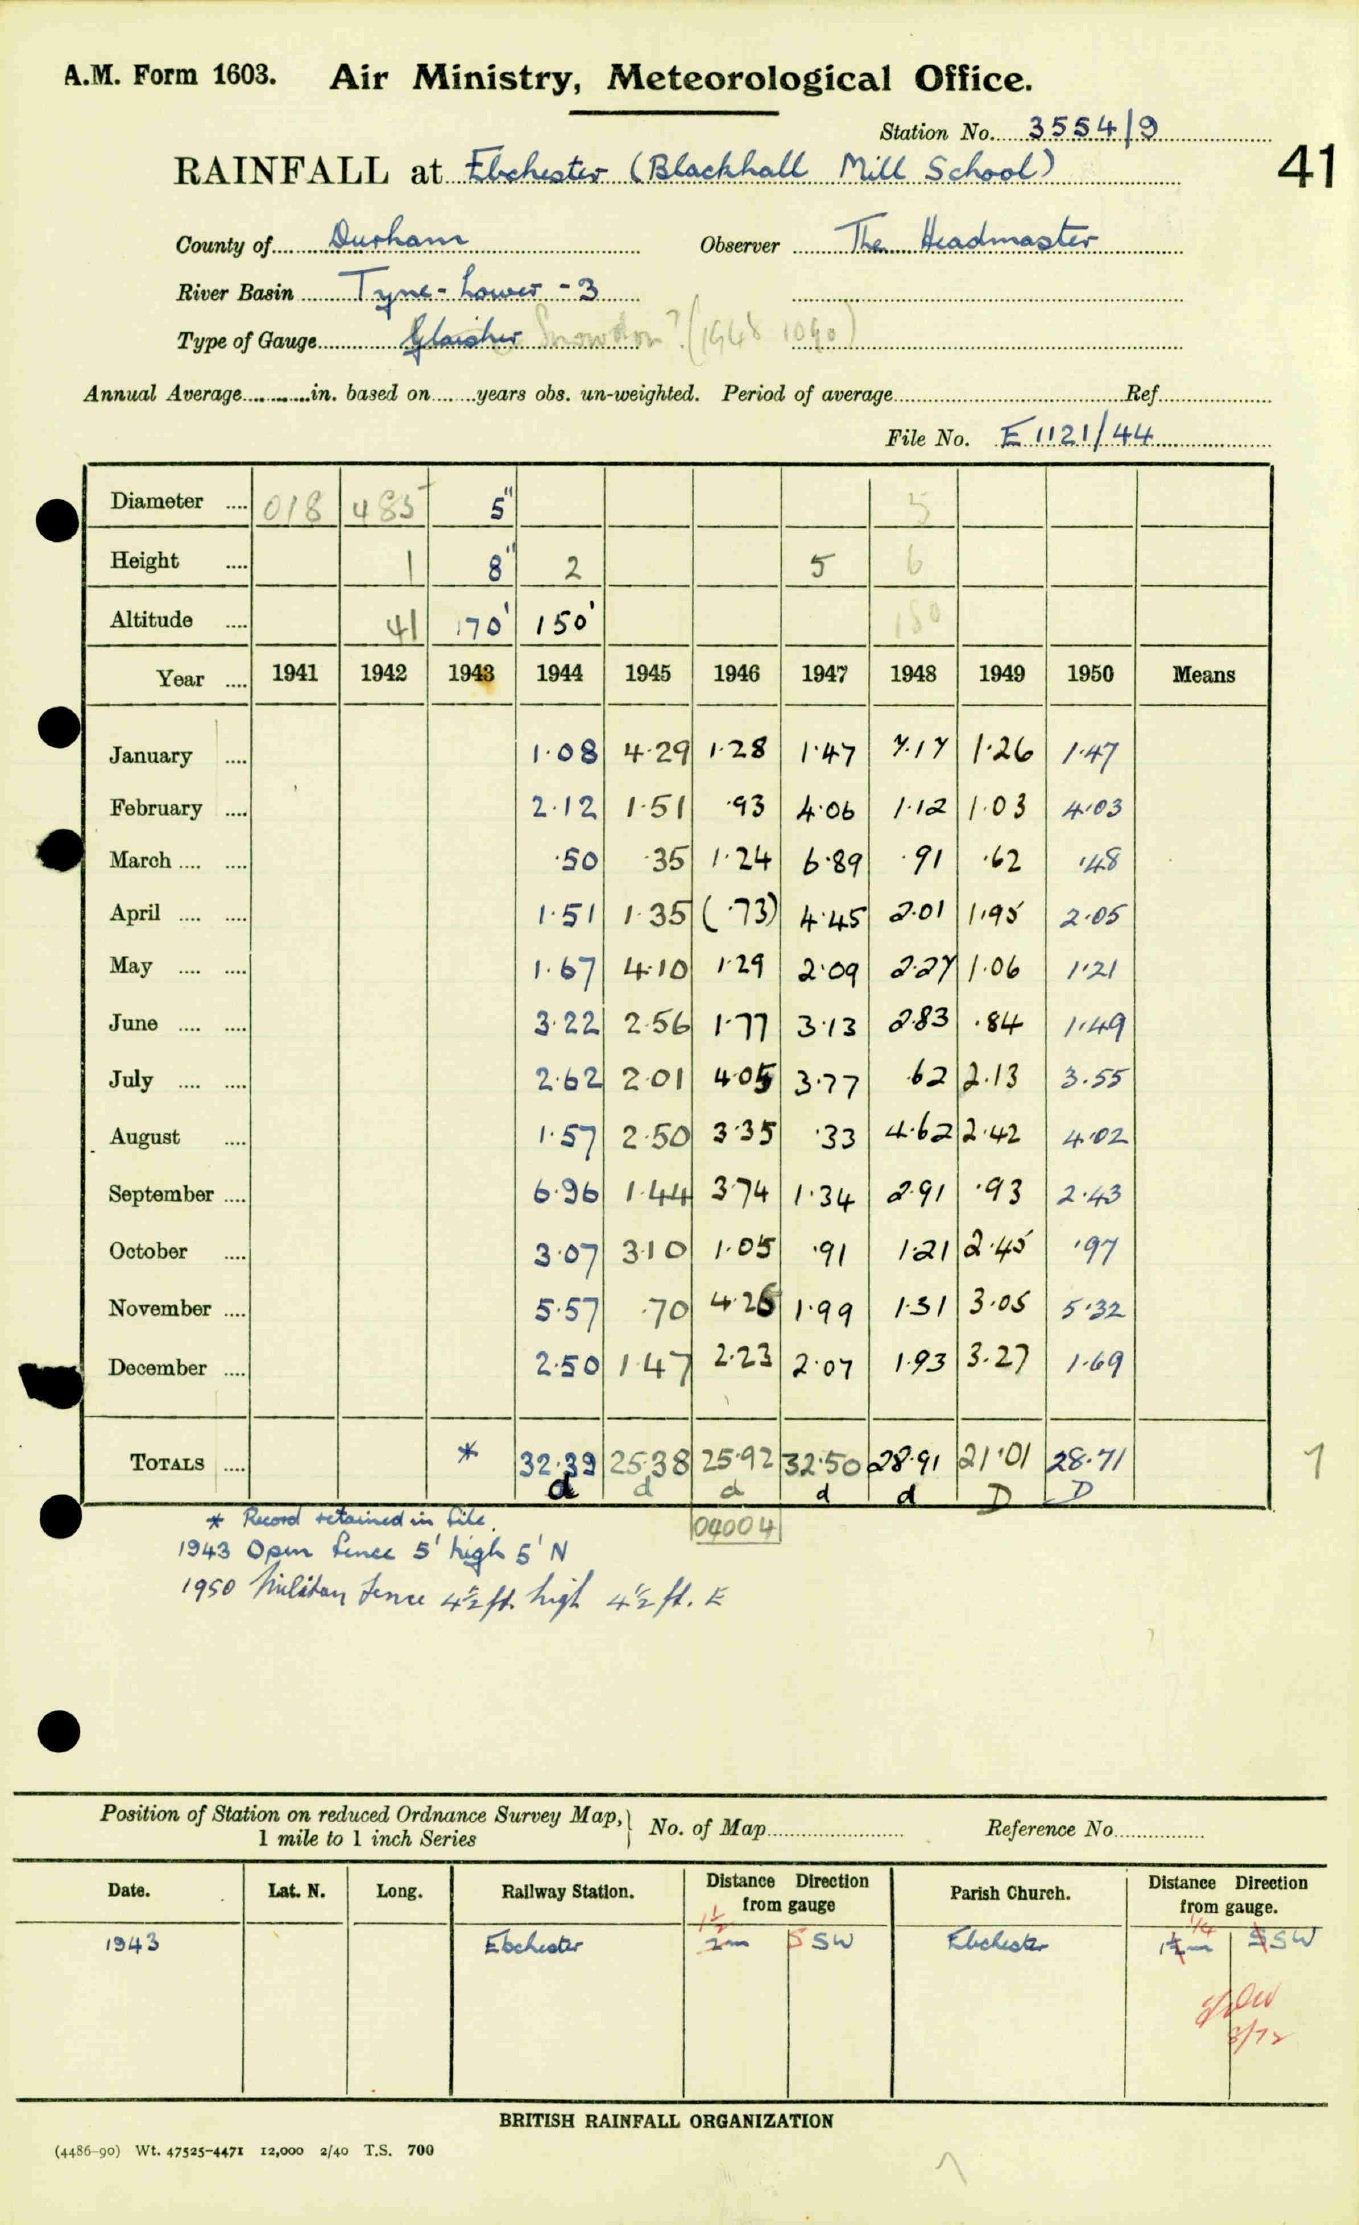 A.M. Form 1603. Air Ministry, Meteorological Office.
Station No. 3554/9
41
RAINFALL at Ebchester (Blackhall Mill School)
County of Durham Observer The Headmaster
River Basin Tyne - Lower - 3
Type of Gauge Glaisher Snowdon? (1948
Annual Average in. based on years obs. un-weighted. Period of average Ref
File No. E 1121/44
Diameter 018 485 5" 5
Height 1 8" 2 5 6
Altitude 41 170' 150' 150
Year 1941 1942 1943 1944 1945 1946 1947 1948 1949 1950 Means
January 1.08 4.29 1.28 1.47 7.17 1.26 1.47
February 2.12 1.51 .93 4.06 1.12 1.03 4.03
March .50 .35 1.24 6.89 .91 .62 .48
April 1.51 1.35 (.73) 4.45 2.01 1.95 2.05
May 1.67 4.10 1.29 2.09 2.27 1.06 1.21
June 3.22 2.56 1.77 3.13 2.83 .84 1.49
July 2.62 2.01 4.05 3.77 .62 2.13 3.55
August 1.57 2.50 3.35 .33 4.62 2.42 4.02
September 6.96 1.44 3.74 1.34 2.91 .93 2.43
October 3.07 3.10 1.05 .91 1.21 2.45 .97
November 5.57 .70 4.26 1.99 1.31 3.05 5.32
December 2.50 1.47 2.23 2.07 1.93 3.27 1.69
TOTALS * 32.39 25.38 25.92 32.50 28.91 21.01 28.71 1
d d d d d D D
* Record retained in file. 04004
1943 Open fence 5' high 5' N
1950 Military fence 4½ ft. high 4½ ft. E
Position of Station on reduced Ordnance Survey Map,
1 mile to 1 inch Series
No. of Map Reference No.
Date. Lat. N. Long. Railway Station. Distance Direction from gauge Parish Church. Distance Direction from gauge.
1½ 1/4
1943 Ebchester 2m S SW Ebchester SSW
8/72
BRITISH RAINFALL ORGANIZATION
(4486-90) Wt. 47525-4471 12,000 2/40 T.S. 700